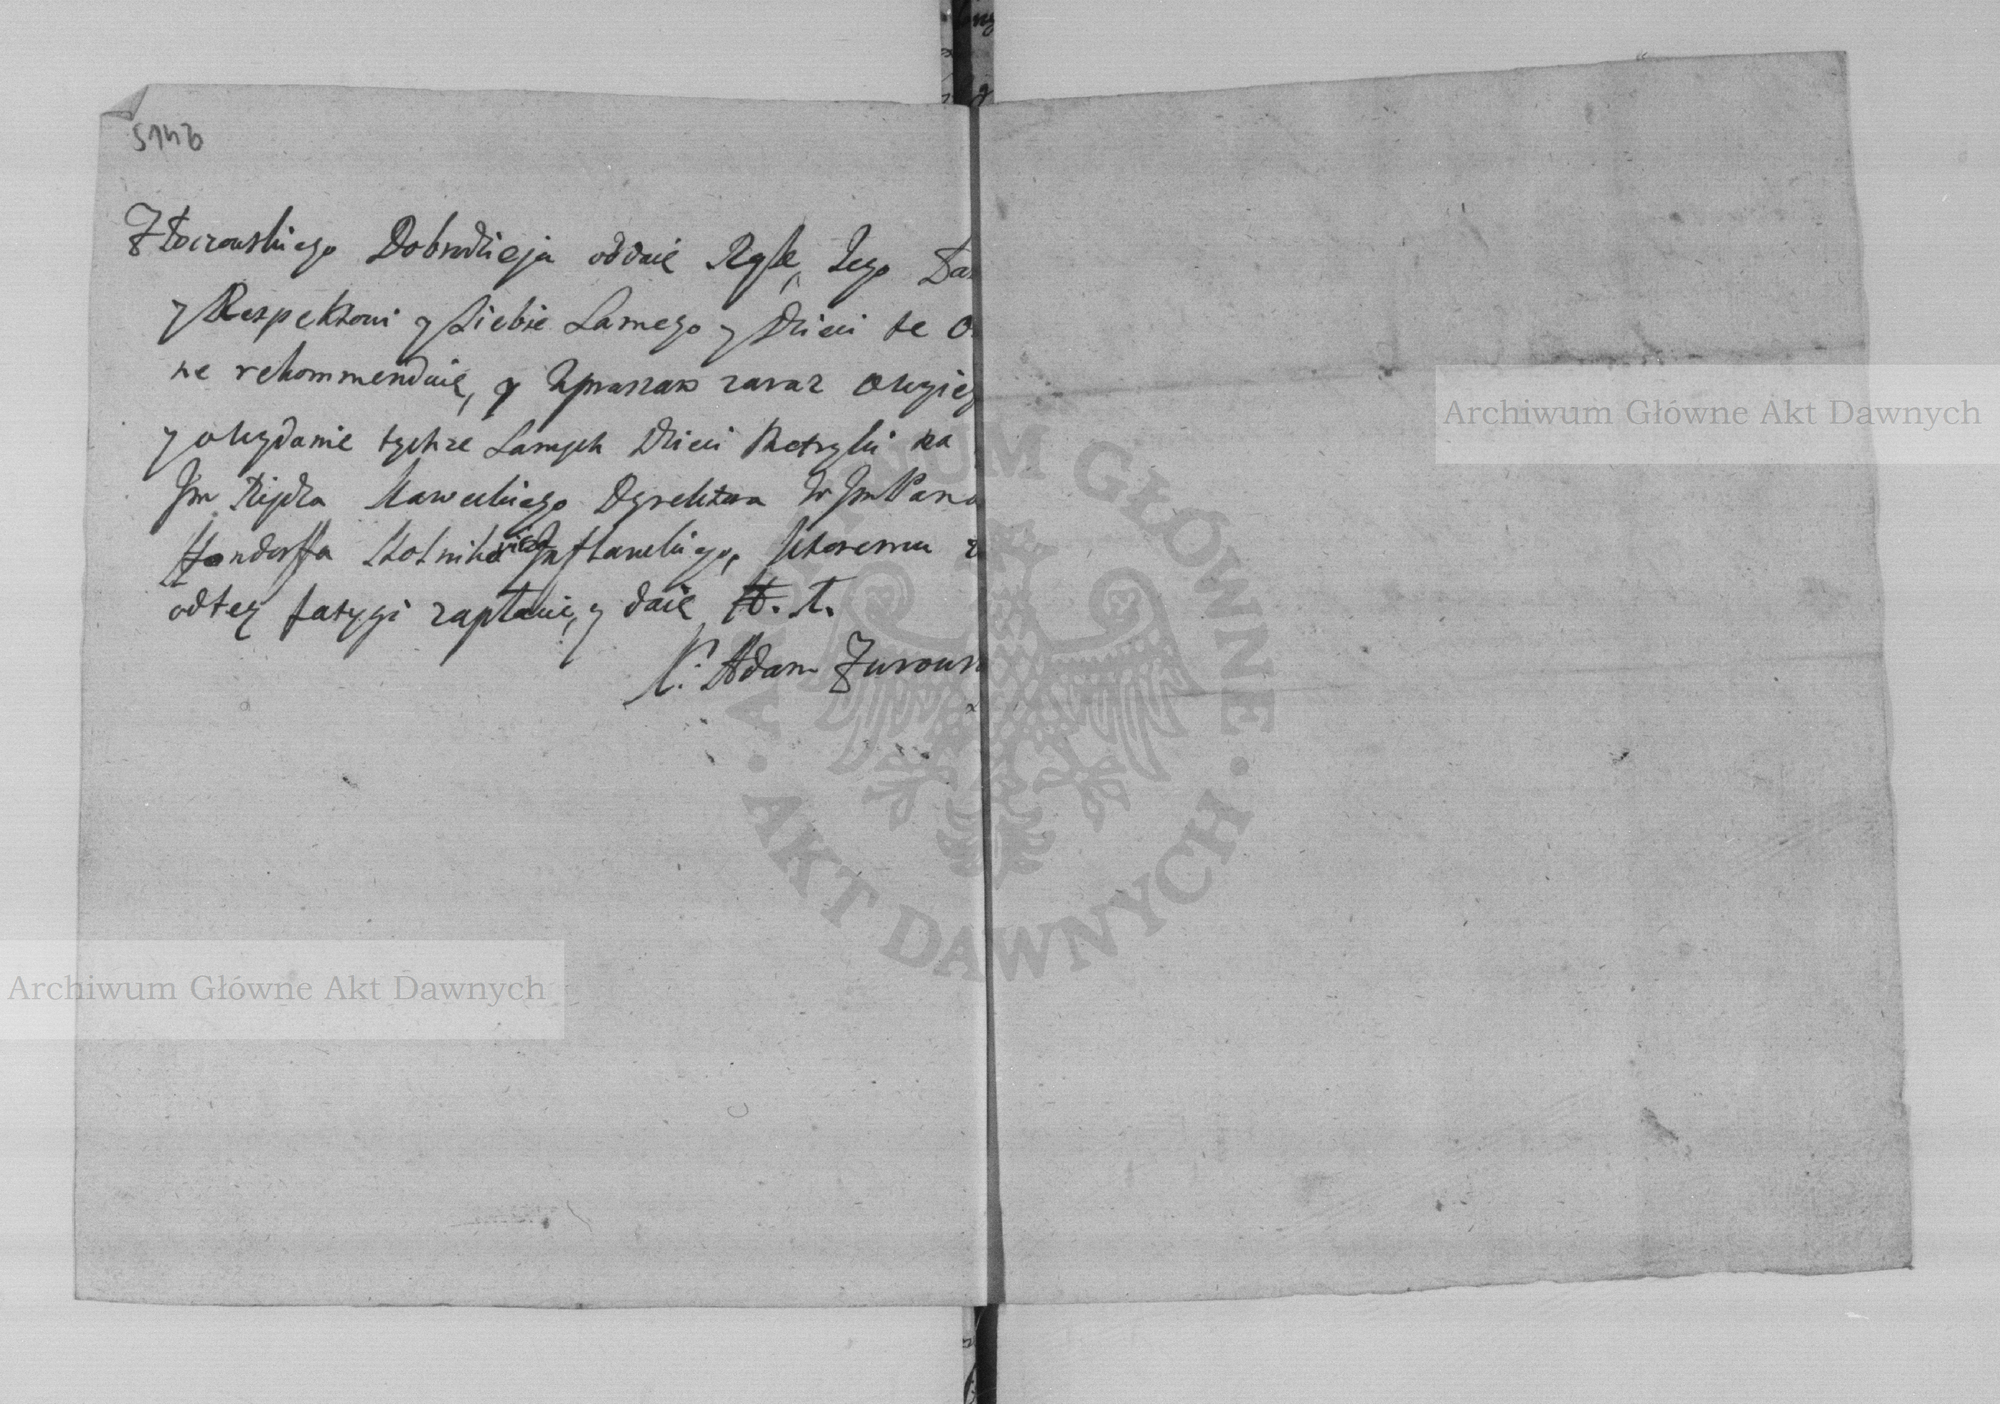 5146
Złoczowskiego Dobrodzieja oddaię Jego
y Respektowi y Siebie Samego y Dzieci te
ne rekommenduię, y Upraszam zaraz
y o wydanie tychże Samych Dzieci Metryki na
Jm Xiędza Dyrektora W Jm Pana
Hondorffa Stolnikowicza Inflanckiego, ktoremu
od tey fatygi zapłacię, y daię #. 1.
X. Adam Zurows
Archiwum Główne Akt Dawnych
Archiwum Główne Akt Dawnych
ARCHIWUM GŁÓWNE
AKT DAWNYCH